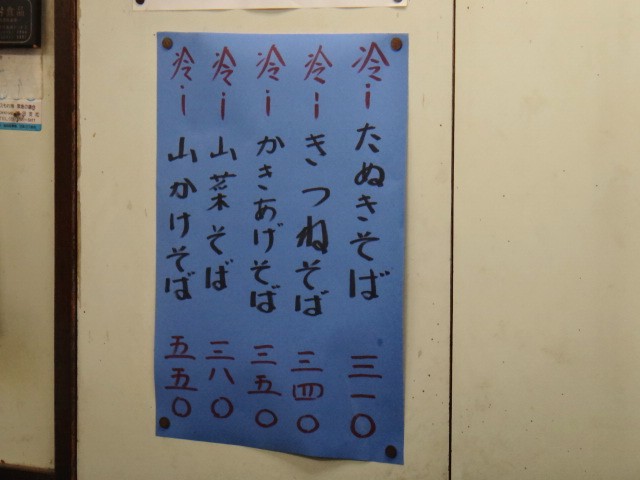 冷し たぬきそば 三一〇
冷し きつねそば 三四〇
冷し かきあげそば 三五〇
冷し 山菜そば 三八〇
冷し 山かけそば 五五〇